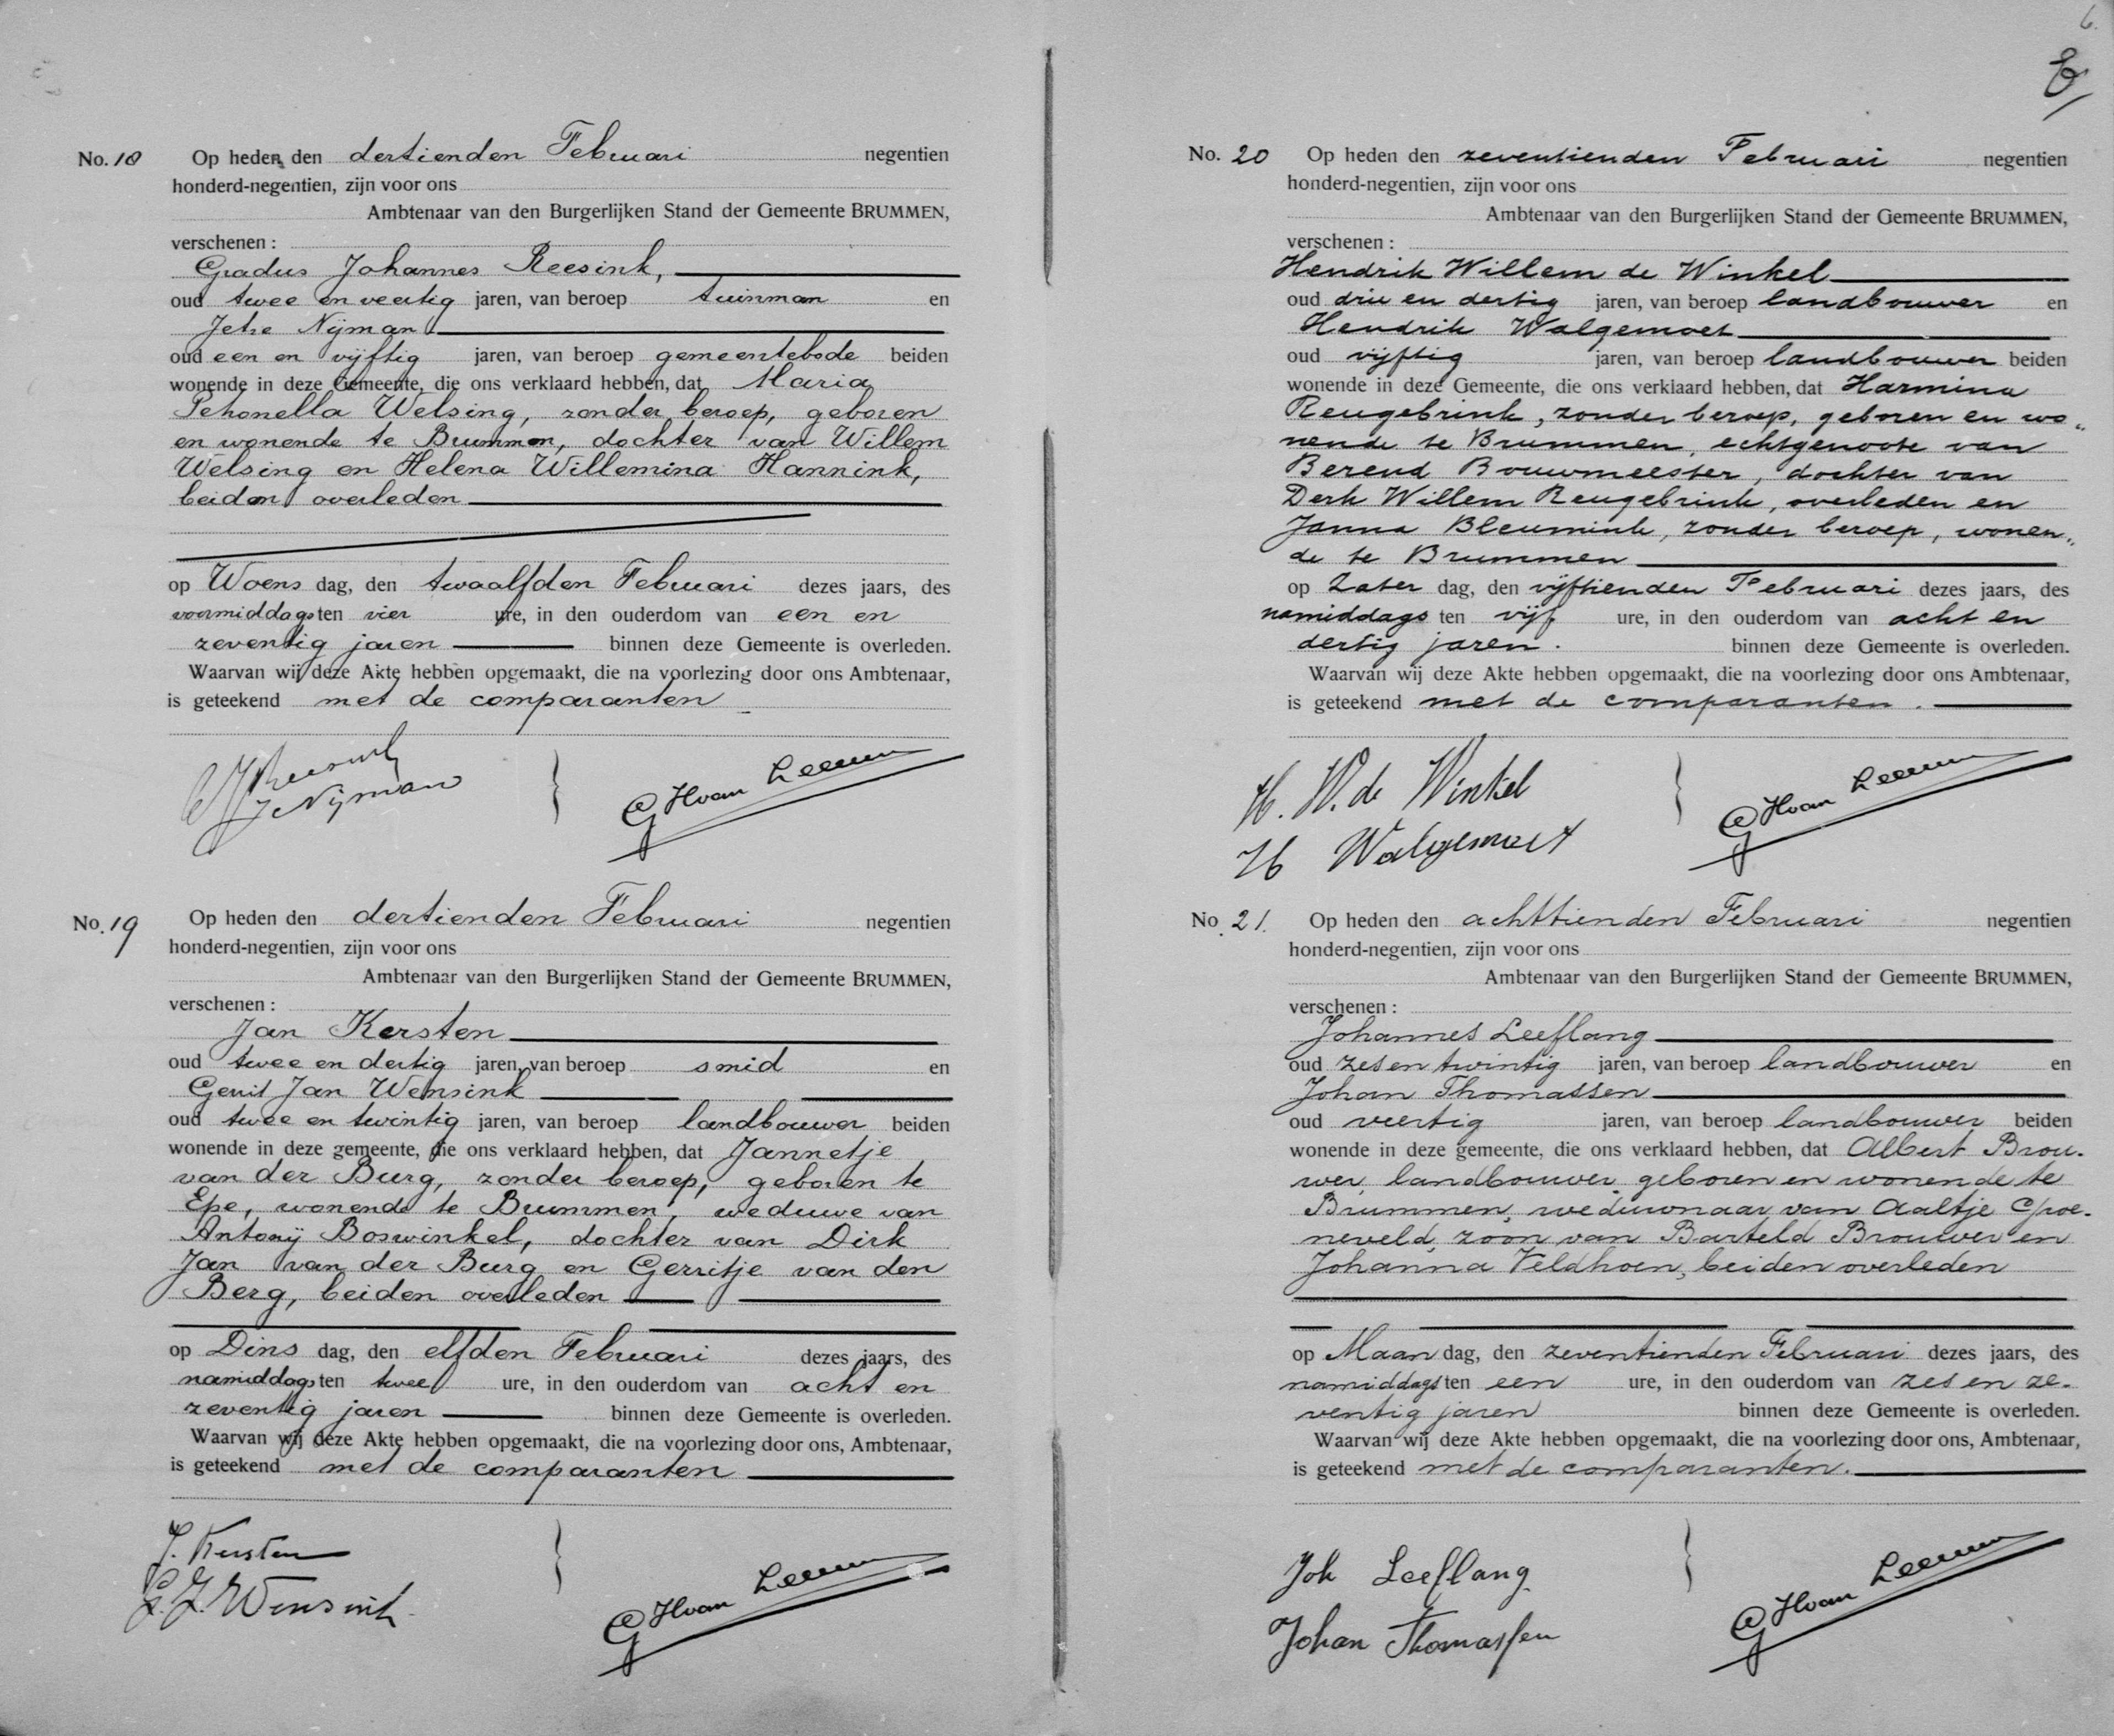 No. 18 Op heden den dertienden Februari negentien
honderd-negentien, zijn voor ons
Ambtenaar van den Burgerlijken Stand der Gemeente BRUMMEN,
verschenen :
Gradus Johannes Reesink,
oud twee en veertig jaren, van beroep tuinman en
Jetse Nijman
oud een en vijftig jaren, van beroep gemeentebode beiden
wonende in deze Gemeente, die ons verklaard hebben, dat Maria
Petronella Welsing, zonder beroep, geboren
en wonende te Brummen, dochter van Willem
Welsing en Helena Willemina Hannink,
beiden overleden
op Woens dag, den twaalfden Februari dezes jaars, des
voormiddags ten vier ure, in den ouderdom van een en
zeventig jaren binnen deze Gemeente is overleden.
Waarvan wij deze Akte hebben opgemaakt, die na voorlezing door ons Ambtenaar,
is geteekend met de comparanten
GJReesink
JNijman
GHvan Leeuwen
No. 19 Op heden den dertienden Februari negentien
honderd-negentien, zijn voor ons
Ambtenaar van den Burgerlijken Stand der Gemeente BRUMMEN,
verschenen :
Jan Kersten
oud twee en dertig jaren, van beroep smid en
Gerrit Jan Wensink
oud twee en twintig jaren, van beroep landbouwer beiden
wonende in deze gemeente, die ons verklaard hebben, dat Jannetje
van der Burg, zonder beroep, geboren te
Epe, wonende te Brummen, weduwe van
Antonij Boswinkel, dochter van Dirk
Jan van der Burg en Gerritje van den
Berg, beiden overleden
op Dins dag, den elfden Februari dezes jaars, des
namiddags ten twee ure, in den ouderdom van acht en
zeventig jaren binnen deze Gemeente is overleden.
Waarvan wij deze Akte hebben opgemaakt, die na voorlezing door ons, Ambtenaar,
is geteekend met de comparanten
J. Kersten
G. J. Wensink
GHvan Leeuwen
6.
No. 20 Op heden den zeventienden Februari negentien
honderd-negentien, zijn voor ons
Ambtenaar van den Burgerlijken Stand der Gemeente BRUMMEN,
verschenen :
Hendrik Willem de Winkel
oud drie en dertig jaren, van beroep landbouwer en
Hendrik Walgemoet
oud vijftig jaren, van beroep landbouwer beiden
wonende in deze Gemeente, die ons verklaard hebben, dat Harmina
Reugebrink, zonder beroep, geboren en wo„
nende te Brummen, echtgenoote van
Berend Bouwmeester, dochter van
Derk Willem Reugebrink, overleden en
Janna Bleumink, zonder beroep, wonen„
de te Brummen
op Zater dag, den vijftienden Februari dezes jaars, des
namiddags ten vijf ure, in den ouderdom van acht en
dertig jaren. binnen deze Gemeente is overleden.
Waarvan wij deze Akte hebben opgemaakt, die na voorlezing door ons Ambtenaar,
is geteekend met de comparanten.
H. W. de Winkel
H Walgemoet
GHvan Leeuwen
No. 21. Op heden den achttienden Februari negentien
honderd-negentien, zijn voor ons
Ambtenaar van den Burgerlijken Stand der Gemeente BRUMMEN,
verschenen :
Johannes Leeflang
oud zes en twintig jaren, van beroep landbouwer en
Johan Thomassen
oud veertig jaren, van beroep landbouwer beiden
wonende in deze gemeente, die ons verklaard hebben, dat Albert Brou-
wer, landbouwer, geboren en wonende te
Brummen, weduwnaar van Aaltje Groe-
neveld, zoon van Barteld Brouwer en
Johanna Veldhoen, beiden overleden
op Maan dag, den zeventienden Februari dezes jaars, des
namiddags ten een ure, in den ouderdom van zes en ze-
ventig jaren binnen deze Gemeente is overleden.
Waarvan wij deze Akte hebben opgemaakt, die na voorlezing door ons, Ambtenaar,
is geteekend met de comparanten.
Joh Leeflang
Johan Thomassen
GHvan Leeuwen